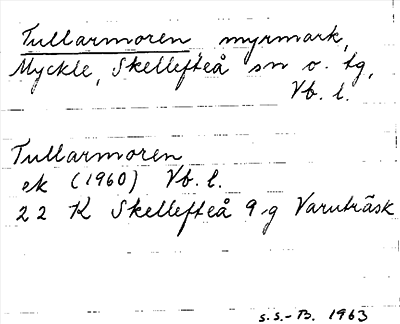 Tullarmoren, myrmark,
Myckle, Skellefteå sn o. tg,
Vb. l.
Tullarmoren
ek (1960) Vb. l.
22 K Skellefteå 9 g Varuträsk
S.S.-B. 1963